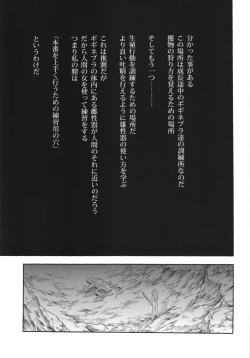 分かった事がある
この場所は成長途中のギギネブラ達の訓練所なのだ
獲物の狩り方を覚えるための場所
そしてもう一つ───
生殖行動を訓練するための場所だ
より良い吐精を行えるように雄性器の使い方を学ぶ
これは推測だが
ギギネブラの体内にある雌性器が人間のそれに近いのだろう
だから人間の女を使って練習をする
つまり私の膣は
『本番を上手く行うための練習用の穴』
というわけだ